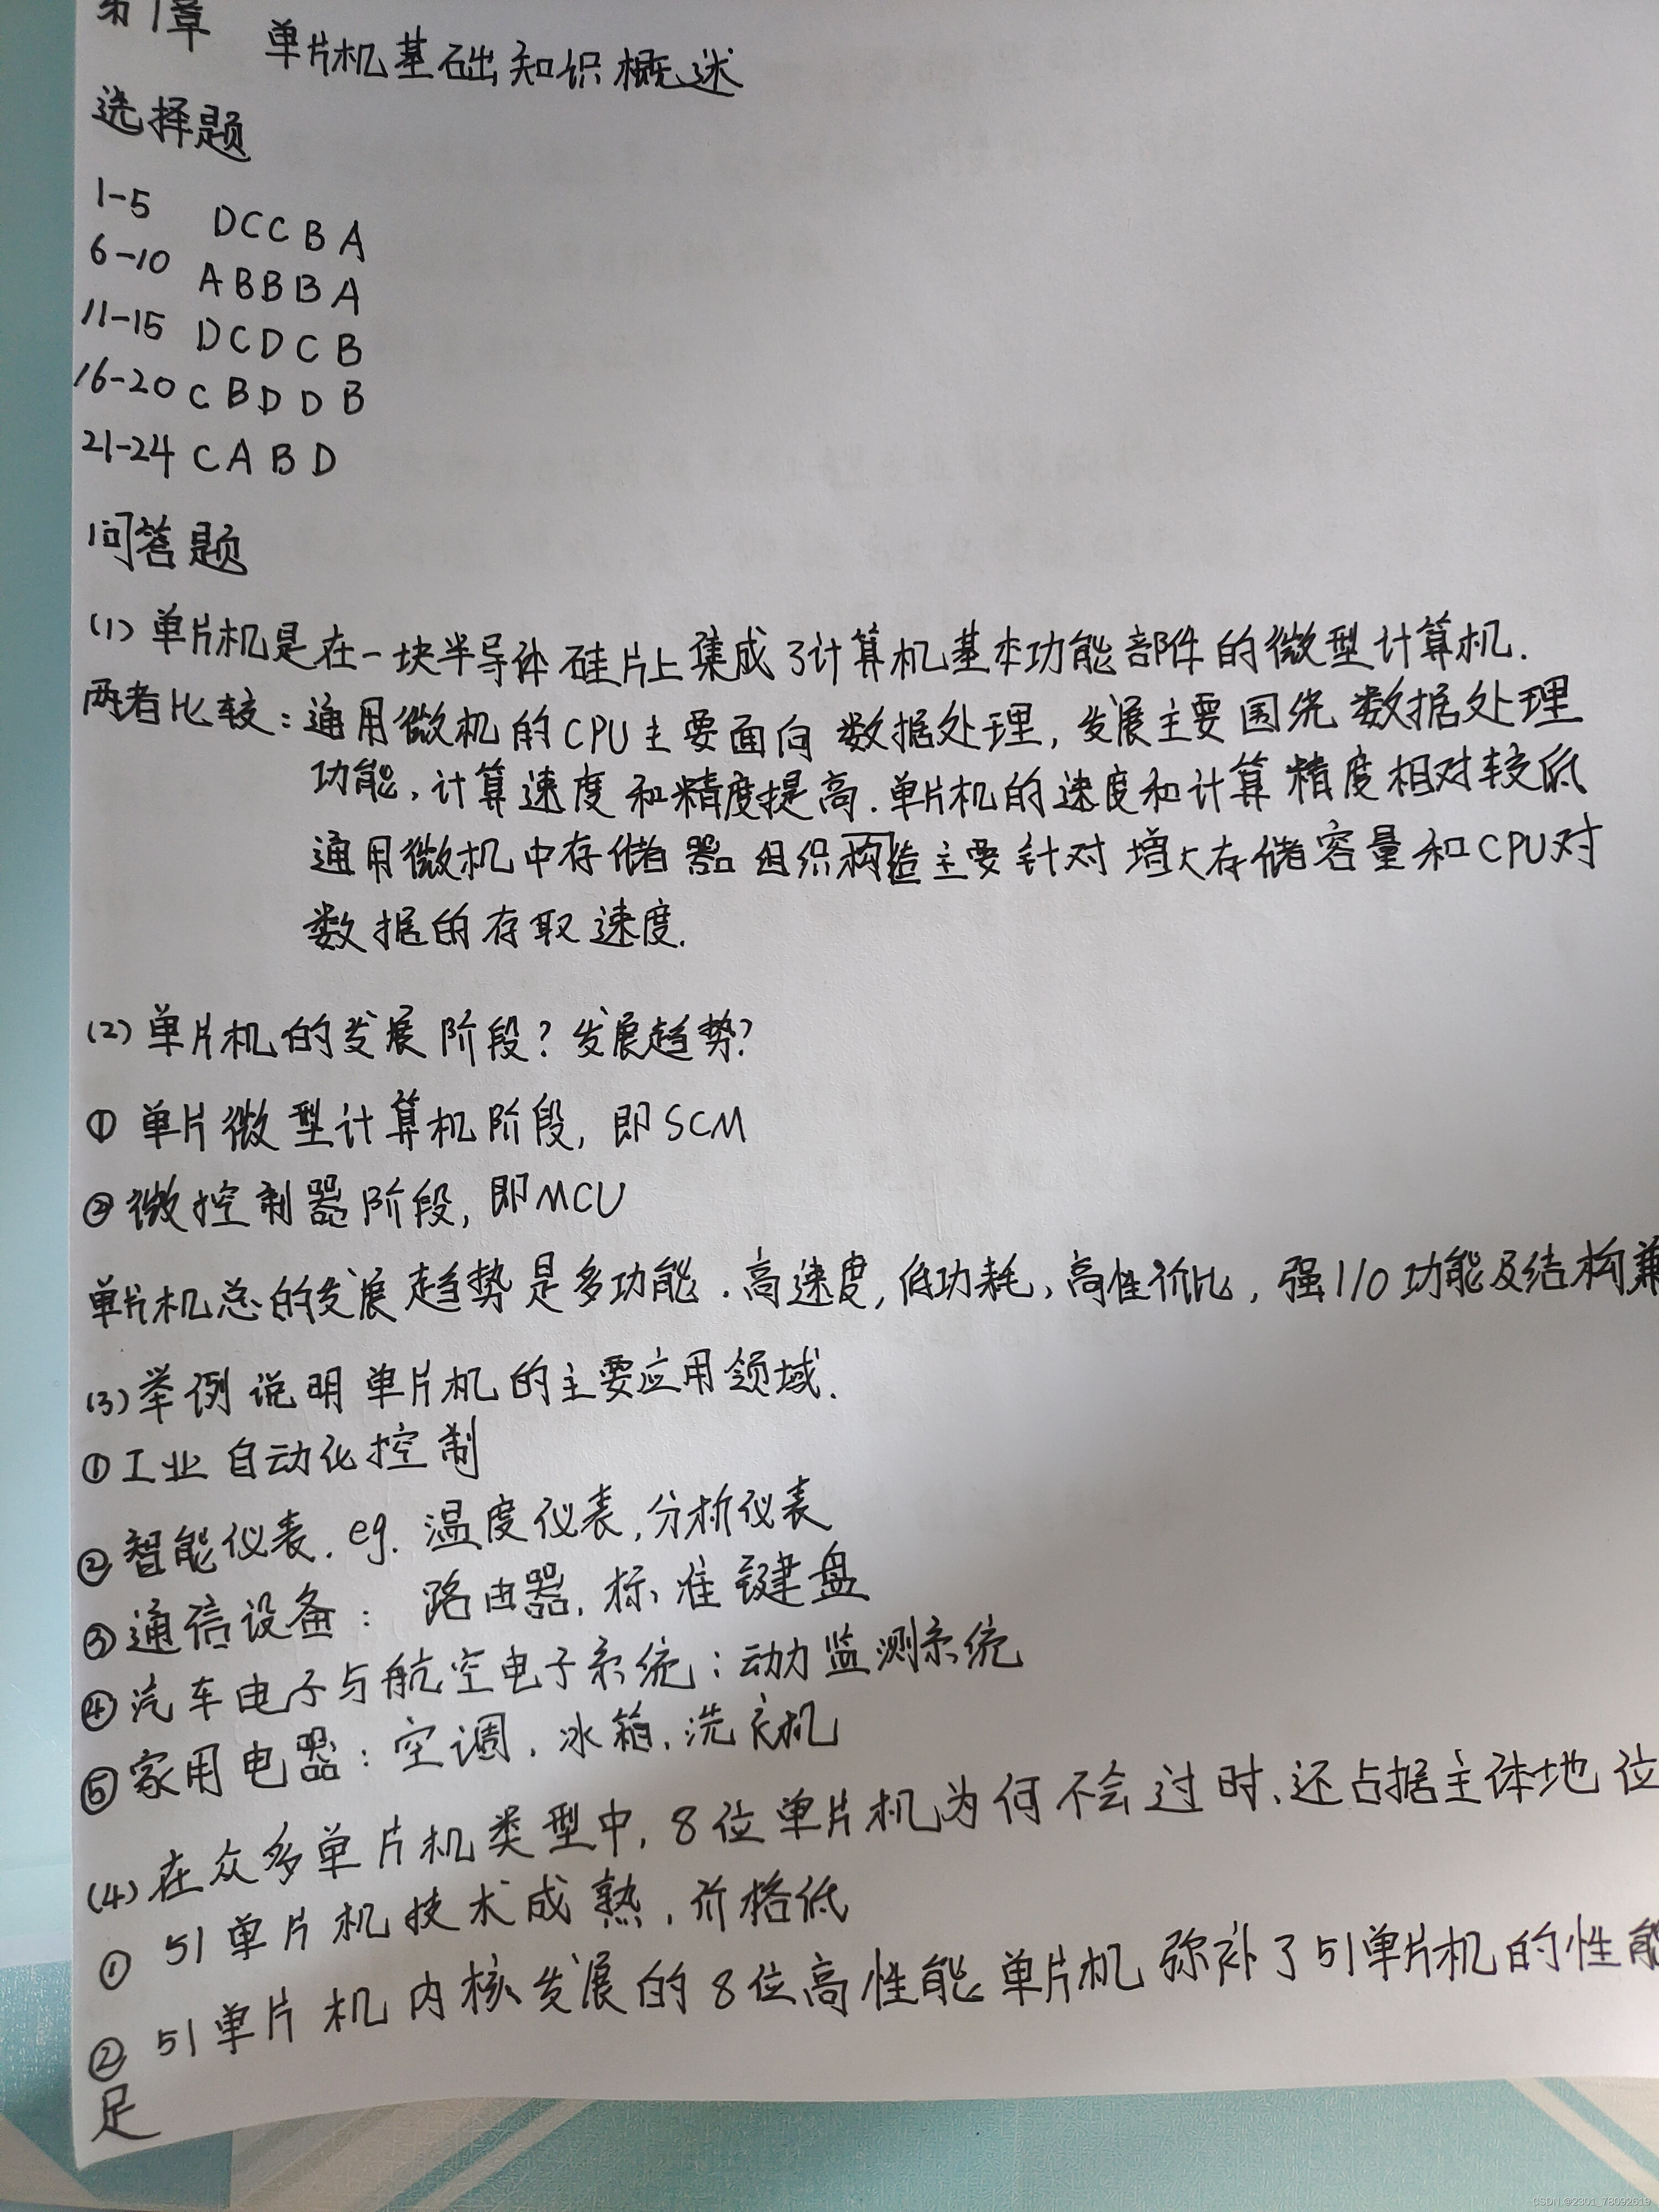 第1章 单片机基础知识概述
选择题
1-5 DCCBA
6-10 ABBBA
11-15 DCDCB
16-20 CBDDB
21-24 CABD
问答题
(1) 单片机是在一块半导体硅片上集成了计算机基本功能部件的微型计算机.
两者比较:通用微机的CPU主要面向数据处理,发展主要围绕数据处理
功能、计算速度和精度提高.单片机的速度和计算精度相对较低
通用微机中存储器组织构造主要针对增大存储容量和CPU对
数据的存取速度.
(2) 单片机的发展阶段?发展趋势?
① 单片微型计算机阶段,即SCM
② 微控制器阶段,即MCU
单片机总的发展趋势是多功能、高速度,低功耗、高性价比,强I/O功能及结构兼
(3) 举例说明单片机的主要应用领域.
① 工业自动化控制
② 智能仪表.eg.温度仪表,分析仪表
③ 通信设备:路由器,标准键盘
④ 汽车电子与航空电子系统:动力监测系统
⑤ 家用电器:空调、冰箱、洗衣机
(4) 在众多单片机类型中,8位单片机为何不会过时、还占据主体地位
① 51单片机技术成熟,价格低
② 51单片机内核发展的8位高性能单片机弥补了51单片机的性能
足
CSDN @2301_78092619